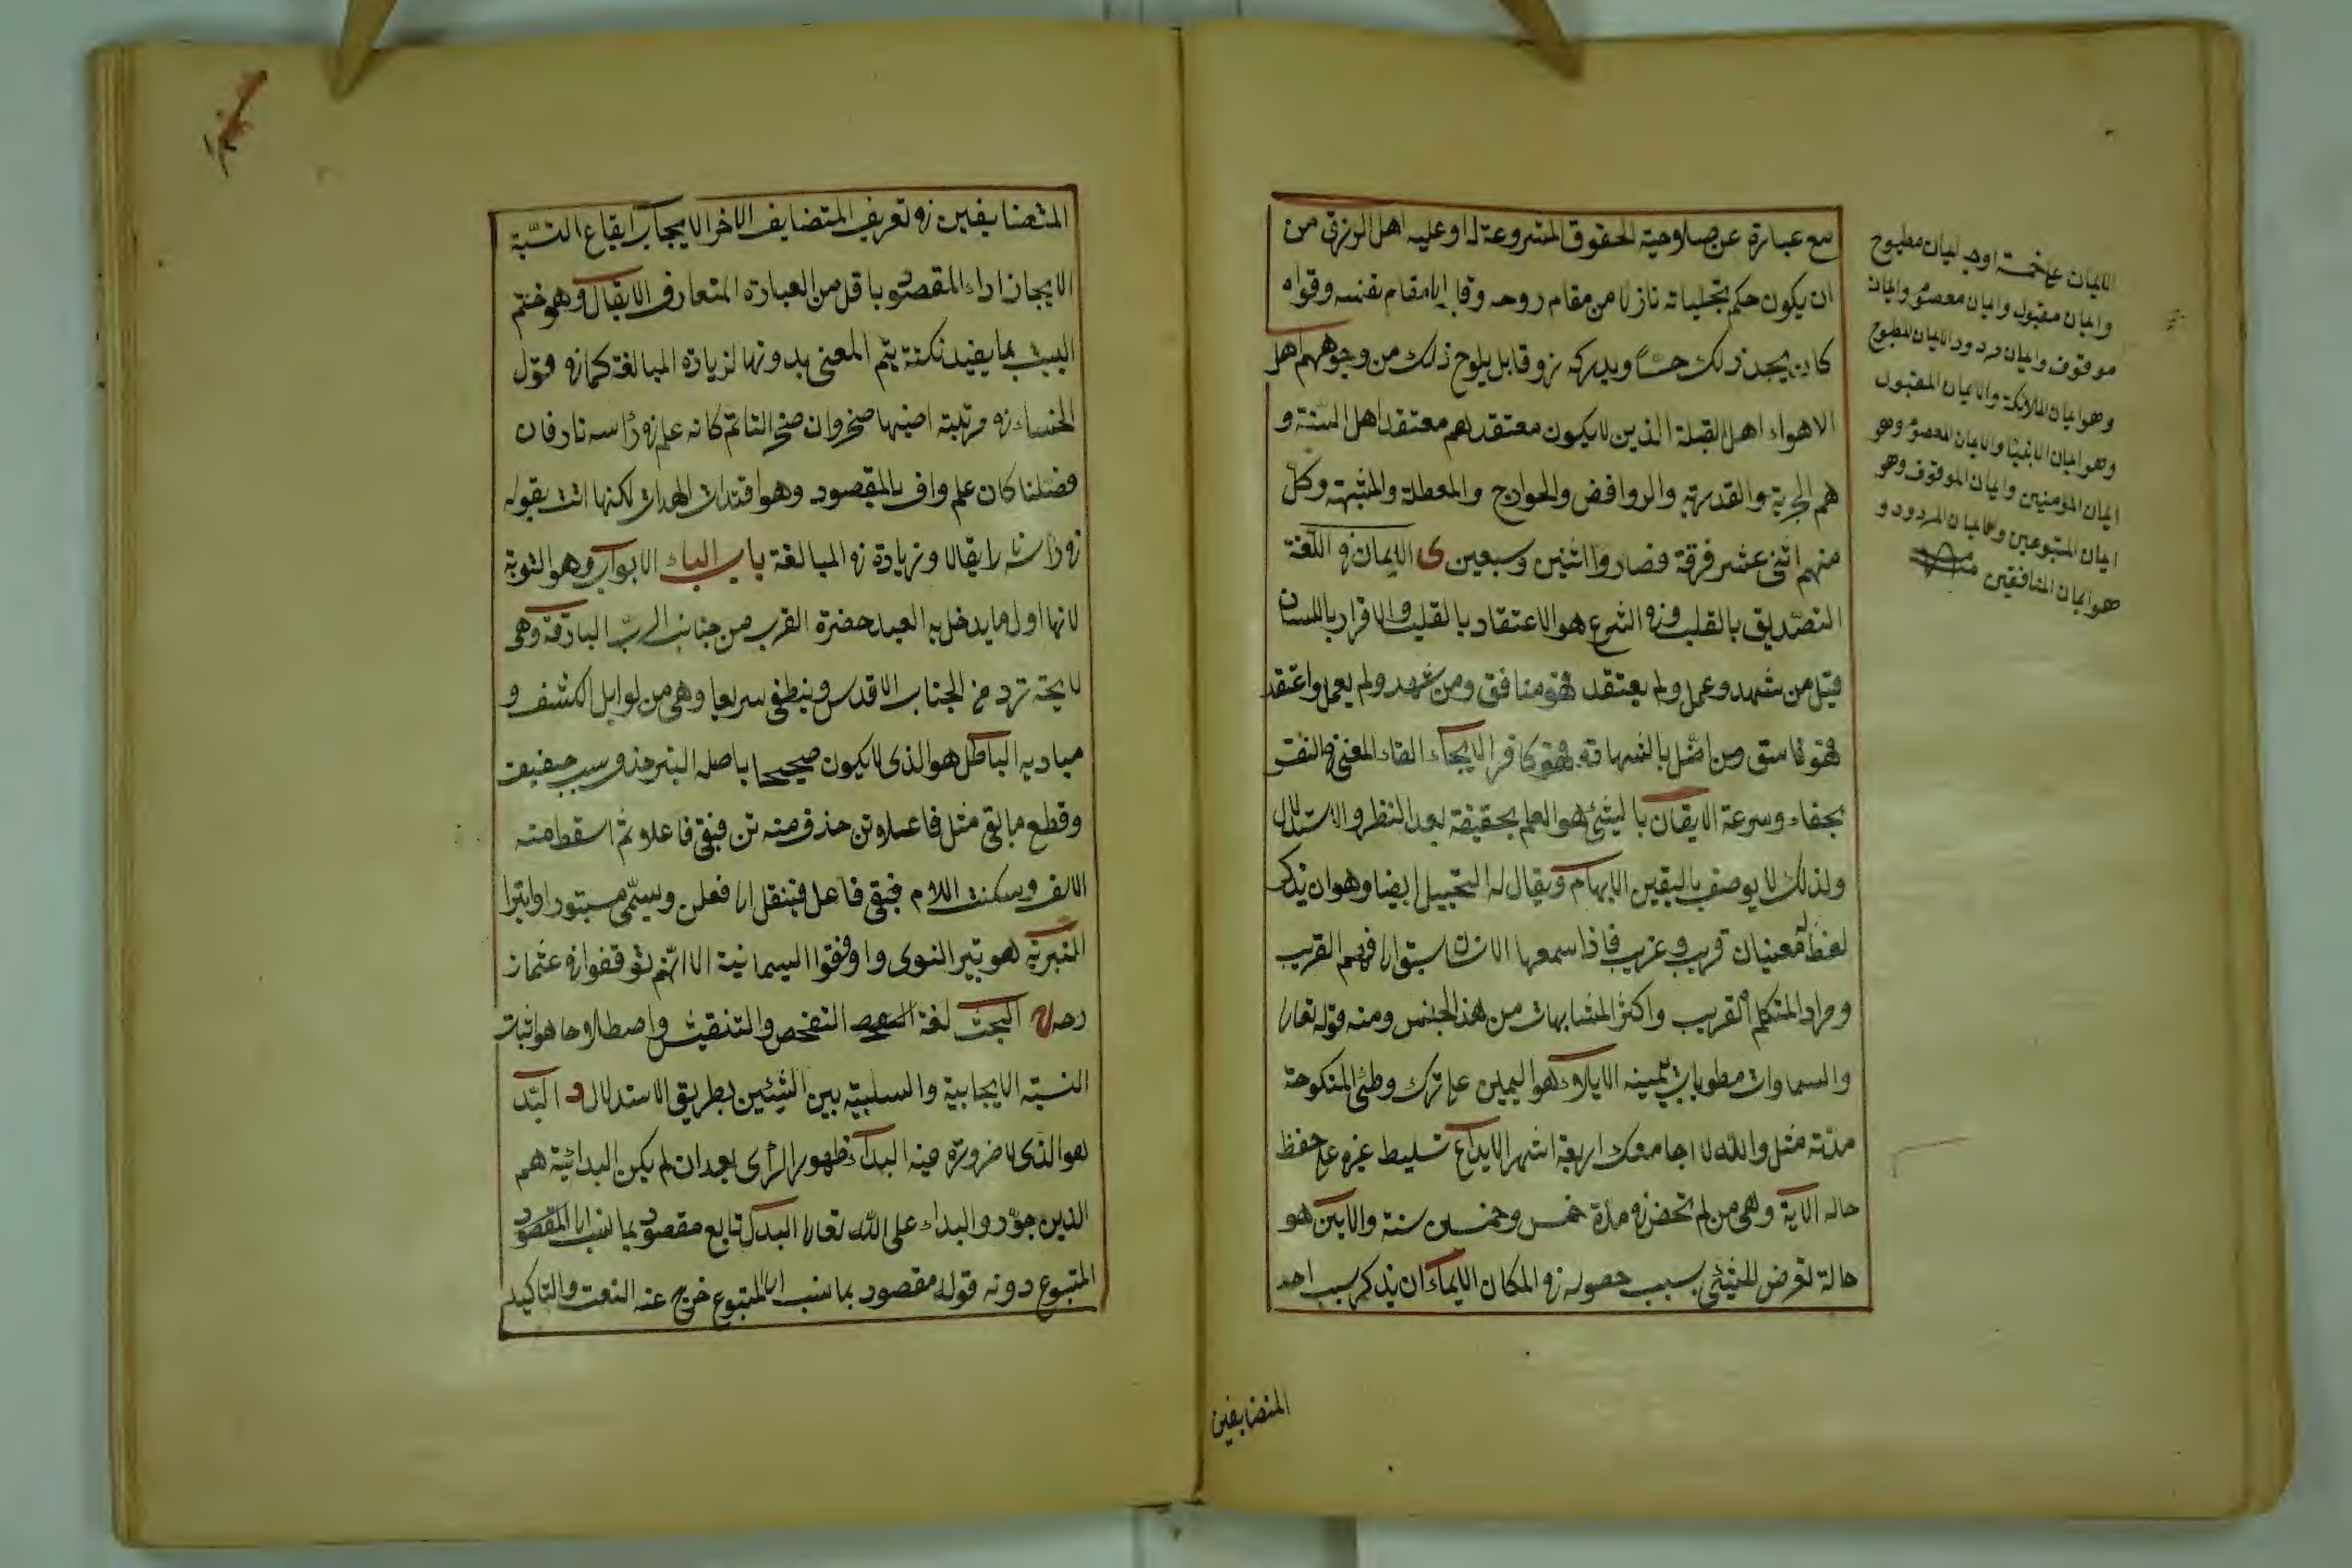 مع عبارة عن صلاحية الحقوق المشروعة له اوعليه اهل الرزق من
ان يكون حكم تجلياته نازلا من مقام روحه وقلبه الى مقام نفسه وقواه
كان يجد ذلك حسا ويدركه ذوقا بل يلوح ذلك من وجوههم اهل
الاهواء اهل القبلة الذين لا يكون معتقدهم معتقد اهل السنة و
هم الجبرية والقدرية والروافض والخوارج والمعطلة والمشبهة وكل
منهم اثنى عشر فرقة فصاروا اثنين وسبعين ى الايمان فى اللغة
التصديق بالقلب وفى الشرع هو الاعتقاد بالقلب والاقرار باللسان
قيل من شهد وعمل ولم يعتقد فهو منافق ومن شهد ولم يعمل واعتقد
فهو فاسق ومن اخل بالشهادة فهو كافر الايحاء القاء المعنى فى النفس
بخفاء وسرعة الايقان بالشئ هو العلم بحقيقة بعد النظر والاستدلال
ولذلك لا يوصف باليقين الايهام ويقال له التخييل ايضا وهو ان يذكر
لفظ له معنيان قريب وغريب فاذا سمعها الانسان سبق الى فهمه القريب
ومراد المتكلم القريب واكثر المتشابهات من هذا الجنس ومنه قوله تعالى
والسماوات مطويات بيمينه الايلاء هو اليمين على ترك وطئ المنكوحة
مدته مثل والله لا اجامعك اربعة اشهر الايداع تسليط غيره على حفظ
حاله الآية وهى من لم تحض فى مدة خمس وخمسين سنة والاين هو
حالة تعرض للشئ بسبب حصوله فى المكان الايماء ان يذكر سبب احد
المتضايفين
الايمان على خمسة اوجه ايمان مطبوع
وايمان مقبول وايمان معصوم وايمان
موقوف وايمان مردود الايمان المطبوع
وهو ايمان الملائكة والايمان المقبول
وهو ايمان الانبيا والايمان المعصوم وهو
ايمان المؤمنين وايمان الموقوف وهو
ايمان المبتوعين والايمان المردود و
هو ايمان المنافقين
المتضايفين فى تعريف المتضايف الاخر الايجاب ايقاع النسبة
الايجاز اداء المقصود باقل من العبارة المتعارف الايقال وهو ختم
البيت بما يفيد نكتة يتم المعنى بدونها لزيادة المبالغة كما فى قول
الخنساء فى مرثية اخيها صخر وان صخر التاتم كانه علم فى رأسه نار فان
فضلنا كان علم واف بالمقصود وهو اقتداء الهداة لكنها اتت بقوله
فى رأسه نار ايقالا وزيادة فى المبالغة باب الباء الابواب وهو التوبة
لانها اول ما يدخل به العبد حضرة القرب من جناب الرب البارقة وهى
لايحة ترد من الجناب الاقدس وينطفى سريعا وهى من اوايل الكشف و
مباديه الباطل هو الذى لا يكون صحيحا باصله البتر حذف سبب خفيف
وقطع ما بقى مثل فاعلاتن حذف منه تن فبقى فاعلا ثم اسقط منه
الالف وسكنت اللام فبقى فاعل فينقل الى فعلن وسمى مبتورا وابترا
البترية هو بتير النوى وافقوا السليمانية الا انهم توقفوا فى عثمان
رضه ى البحث لغة التفحص والتفتيش واصطلاحا هو اثبات
النسبة الايجابية والسلبية بين الشيئين بطريق الاستدلال د البد
هو الذى لا ضرورة فيه البداء ظهور الرأى بعد ان لم يكن البدائية هم
الذين جوزوا البداء على الله تعالى البدل تابع مقصود بما نسب الى المقصود
المتبوع دونه قوله مقصود بما نسب الى المتبوع خرج عنه النعت والتاكيد